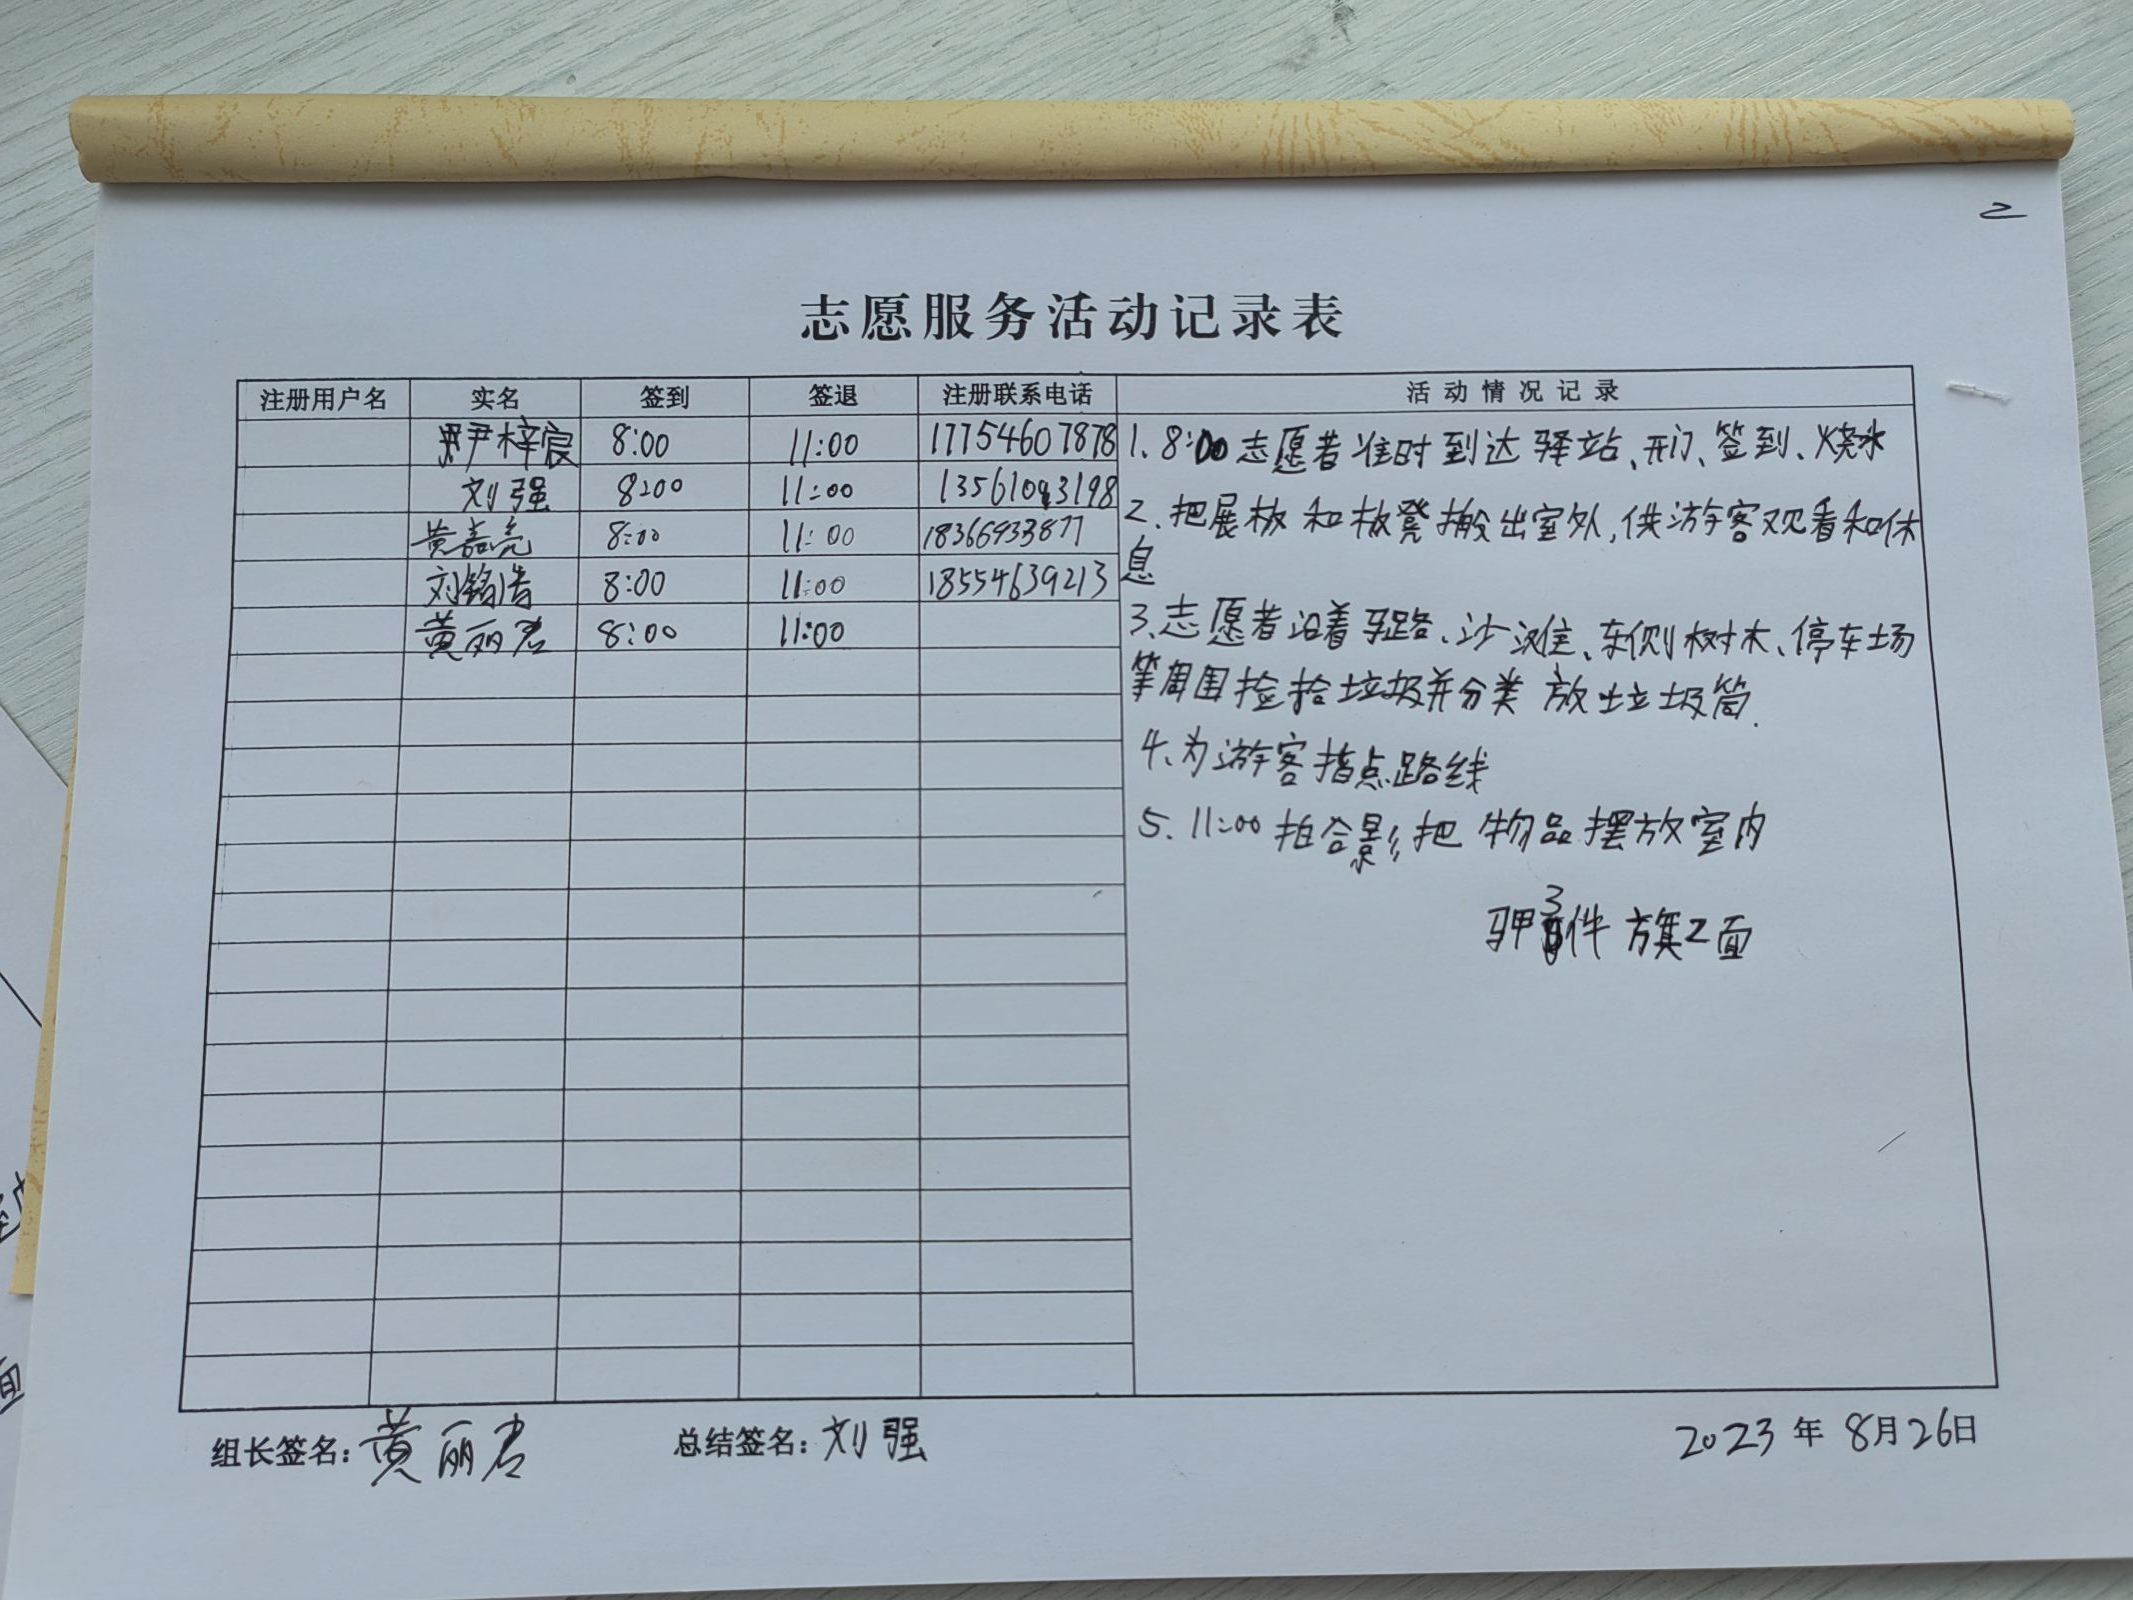 二
志愿服务活动记录表
注册用户名 实名 签到 签退 注册联系电话 活动情况记录
尹梓宸 8:00 11:00 17754607878
刘强 8:00 11:00 13561093198
黄嘉亮 8:00 11:00 18366933877
刘铭浩 8:00 11:00 18554639213
黄丽君 8:00 11:00
1. 8:00 志愿者准时到达驿站、开门、签到、烧水
2、把展板和板凳搬出室外,供游客观看和休
息
3、志愿者沿着马路、沙滩、东侧树木、停车场
等周围捡拾垃圾并分类放垃圾筒.
4、为游客指点路线
5、11:00 拍合影,把物品摆放室内
马甲3件 旗2面
组长签名：黄丽君 总结签名：刘强 2023年8月26日